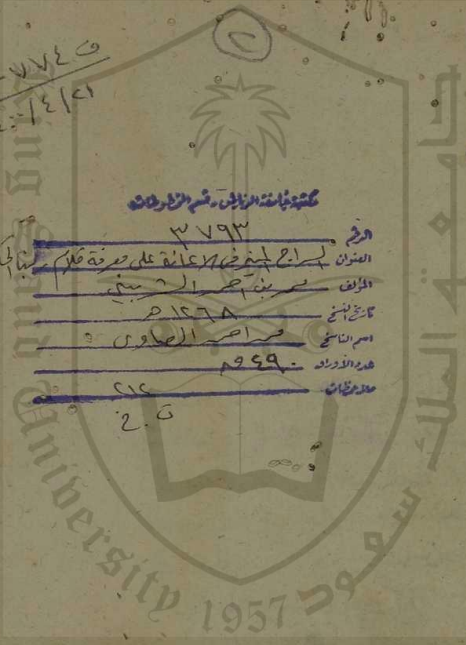 ٢
٧٧٤ ف
٢١/٤/
مكتبة جامعة الرياض - قسم المخطوطات
الرقم ٣٧٩٣
العنوان السراج المنير في الاعانة على معرفة كلام ربنا
المؤلف محمد بن احمد الشربيني
تاريخ النسخ ١٢٦٨ هـ
اسم الناسخ محمد احمد الصاوي
عدد الأوراق ٤٩٠
ملاحظات ٢١٢
ت. خ
جامعة الملك سعود
University
1957